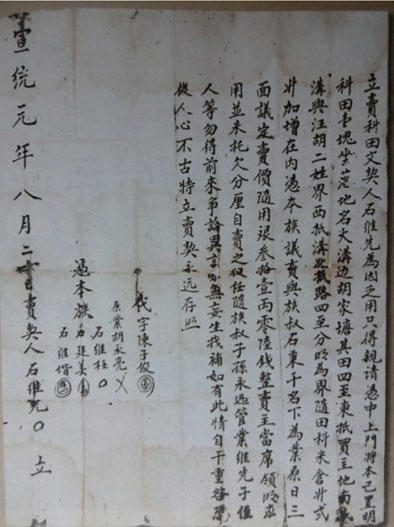 立賣科田文契人石維先為因乏用只得親請憑中上門將本己置明
科田壹塊坐落地名大溝边胡家塘其田四至東抵買主地南抵
溝與汪胡二姓界西抵溝北抵路四至分明為界隨田科米倉升弍
升加增在內憑本族議賣與族叔石東千名下為業原日三
面議定賣價隨用银叁拾壹両零陸錢整賣主當席領明应
用並未托欠分厘自賣之後任隨族叔子孫永远管業維先子侄
人等勿得前來爭論異言亦無妄生找補如有此情自干重咎恐
後人心不古特立賣契永远存照
代字陳子俊
原業胡永亮
石維柱
憑本族石廷美
石維楷
宣統元年八月二十日賣契人石維先 立